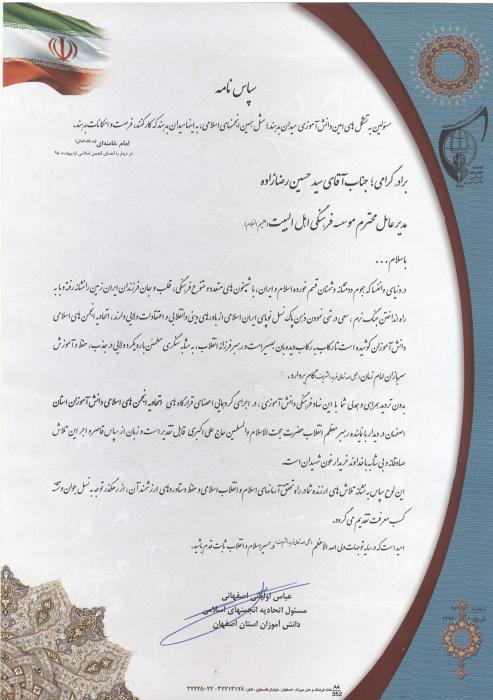 سپاس نامه
مسئولین به تشکل های این دانش آموزی میدان بدهند؛ مثل همین انجمنهای اسلامی، به اینها میدان بدهند که کار کنند، فرصت و امکانات بدهند.
امام خامنه‌ای (مد ظله العالی)
در دیدار با اعضای انجمن اسلامی اردیبهشت ۹۵
برادر گرامی؛ جناب آقای سید حسین رضازاده
مدیر عامل محترم موسسه فرهنگی اهل البیت (علیهم السلام)
با سلام ...
در دنیای وانفسا که هجوم ددمنشانه دشمنان قسم خورده اسلام و ایران، با شبیخون های متعدد و متنوع فرهنگی، قلب و جان فرزندان ایران زمین را نشانه رفته و با به
راه انداختن جنگ نرم، سعی در تهی نمودن ذهن پاک نسل نوپای ایران اسلامی از باورهای دینی و انقلابی و اعتقادات ولایی دارند، اتحادیه انجمن های اسلامی
دانش آموزان کوشیده است تا رکاب به رکاب دیده بان بصیر است و رهبر فرزانه انقلاب، به مثابه سنگری مطمئن با رویکرد ولایی در جذب، حفظ و آموزش
سربازان امام زمان (عجل الله تعالی فرجه الشریف) گام بردارد.
بدون تردید همراهی و همدلی شما با این نهاد فرهنگی دانش آموزی، در اجرای گردهمایی اعضای قرارگاه های اتحادیه انجمن های اسلامی دانش آموزان استان
اصفهان در دیدار با نماینده رهبر معظم انقلاب حضرت حجت الاسلام والمسلمین حاج علی اکبری قابل تقدیر است و زبان از سپاس قاصر و اجر این تلاش
صادقانه و بی شائبه با خداوند خریدار خون شهیدان است.
این لوح سپاس به نشانه تلاش های ارزنده شما در راه تحقق آرمانهای اسلام و انقلاب اسلامی و حفظ دستاوردهای ارزشمند آن، از رهگذر توجه به نسل جوان و تشنه
کسب معرفت تقدیم می گردد.
امید است که در سایه توجهات ولی الله الاعظم (عجل الله تعالی فرجه الشریف) در مسیر اسلام و انقلاب ثابت قدم باشید.
عباس اصفهانی
مسئول اتحادیه انجمنهای اسلامی
دانش آموزان استان اصفهان
خانه فرهنگ و هنر میراث - اصفهان - خیابان فلسطین - تلفن: ۳۲۲۱۳۱۷۸ - ۳۲۲۲۵۰۲۲
A4
352